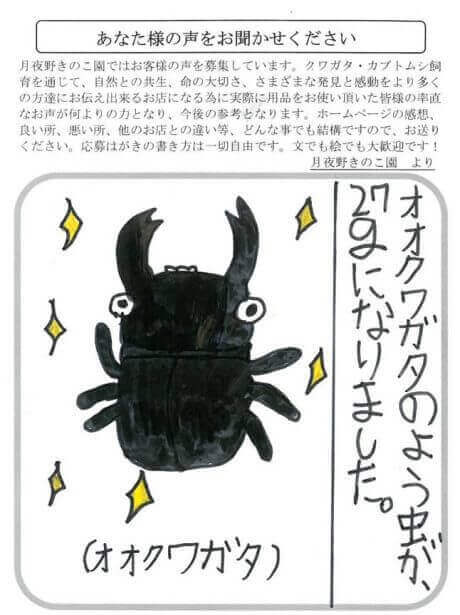 あなた様の声をお聞かせください
月夜野きのこ園ではお客様の声を募集しています。クワガタ・カブトムシ飼
育を通じて、自然との共生、命の大切さ、さまざまな発見と感動をより多く
の方達にお伝え出来るお店になる為に実際に用品をお使い頂いた皆様の率直
なお声が何よりの力となり、今後の参考となります。ホームページの感想、
良い所、悪い所、他のお店との違い等、どんな事でも結構ですので、お送り
ください。応募はがきの書き方は一切自由です。文でも絵でも大歓迎です！
月夜野きのこ園　より
オオクワガタのよう虫が、
27gになりました。
(オオクワガタ)